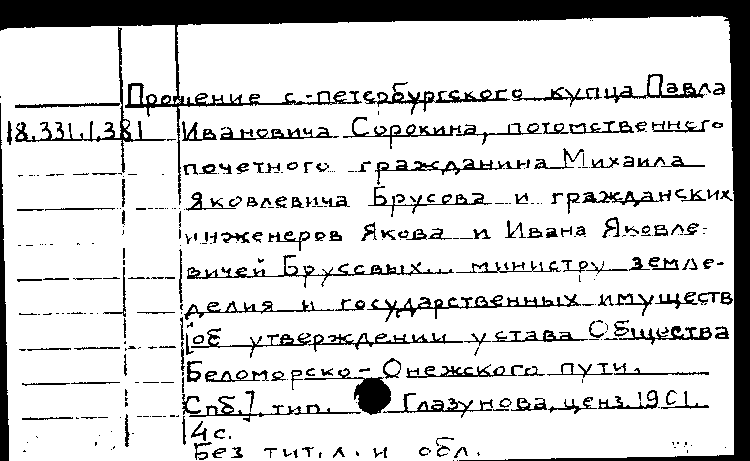 Прошение с.-петербургского купца Павла
18.331.1.381 Ивановича Сорокина, потомственного
почетного гражданина Михаила
Яковлевича Брусова и гражданских
инженеров Якова и Ивана Яковле-
вичей Брусовых... министру земле-
делия и государственных имуществ
[об утверждении устава Общества
Беломорско-Онежского пути.
Спб.], тип. Глазунова, ценз. 1901.
4 с.
Без тит. л. и обл.